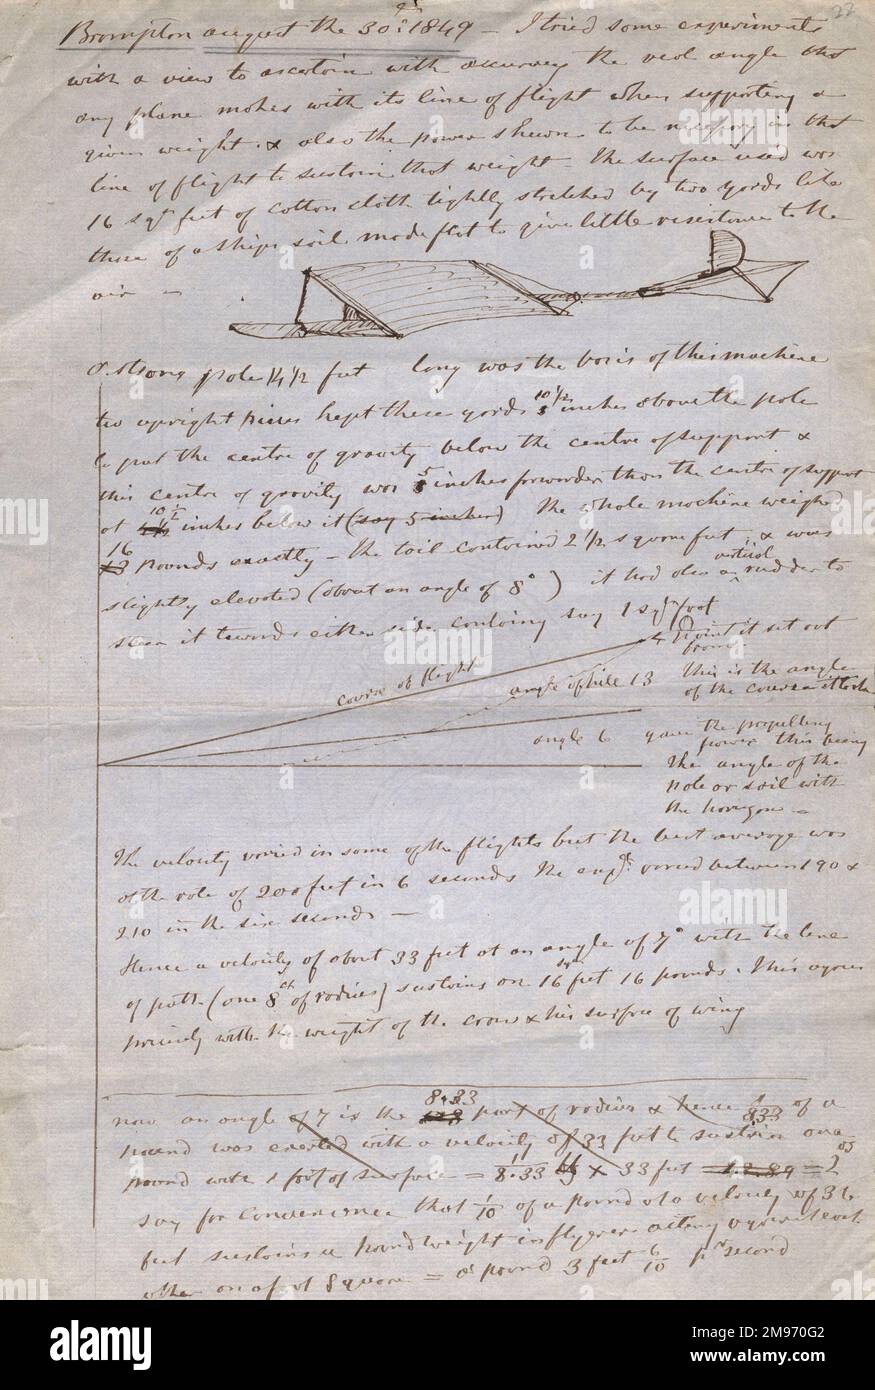 22
Brompton august the 30th 1849 — I tried some experiments
with a view to ascertain with accuracy the real angle that
any plane makes with its line of flight when supporting a
given weight & also the power shewn to be necessary in that
line of flight to sustain that weight — The surface used was
16 sqr feet of cotton cloth tightly stretched by two yards like
those of a ships sail made flat to give little resistance to the
air —
A strong pole 14 1/2 feet long was the basis of this machine
two upright pieces kept these yards 10 1/2 inches above the pole
to put the centre of gravity below the centre of support &
this centre of gravity was 5 inches forwarder than the centre of support
at 10 1/2 inches below it (say 5 inches) The whole machine weighed
16 pounds exactly — the tail contained 2 1/2 square feet & was
slightly elevated (about an angle of 8°) it had also a vertical rudder to
steer it towards either side containg say 1 sqr foot
point it set out
from
course of flight
angle of hill 13
this is the angle
of the course
angle 6 gave the propelling
power this being
the angle of the
pole or sail with
the horizon —
The velocity varied in some of the flights but the best average was
at the rate of 200 feet in 6 seconds the varied between 190 &
210 in the six seconds —
Hence a velocity of about 33 feet at an angle of 7° with the line
of path (one 8th of radius) sustains on 16 sqr feet 16 pounds. This agrees
precisely with the weight of the crow & his surface of wing
now an angle of 7 is the 8.33 part of radius & hence 1/8.33 of a
pound was exerted with a velocity of 33 feet to sustain one
pound with 1 foot of surface = 1/8.33 × 33 feet =
say for convenience that 1/10 of a pound at a velocity of 36
feet sustains a pound weight in flyers acting against each
other on a foot square = a pound 3 feet 6/10 pr second
alamy
Image ID: 2M970G2
www.alamy.com